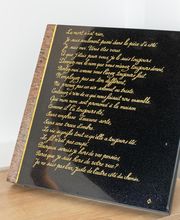 La mort n'est rien,
Je suis seulement passé dans la pièce d'à côté
Je suis moi. Vous êtes vous.
Ce que j'étais pour vous je le suis toujours
Donnez-moi le nom que vous m'avez toujours donné,
Parlez-moi comme vous l'avez toujours fait
N'employez pas un ton différent
Ne prenez pas un air solennel ou triste
Continuez à rire de ce qui nous faisait rire ensemble
Que mon nom soit prononcé à la maison
Comme il l'a toujours été
Sans emphase d'aucune sorte,
Sans une trace d'ombre.
La vie signifie tout ce qu'elle a toujours été
Le fil n'est pas coupé
Pourquoi serais-je hors de vos pensées
Parce que je suis hors de votre vue ?
Je ne suis pas loin, juste de l'autre côté du chemin.